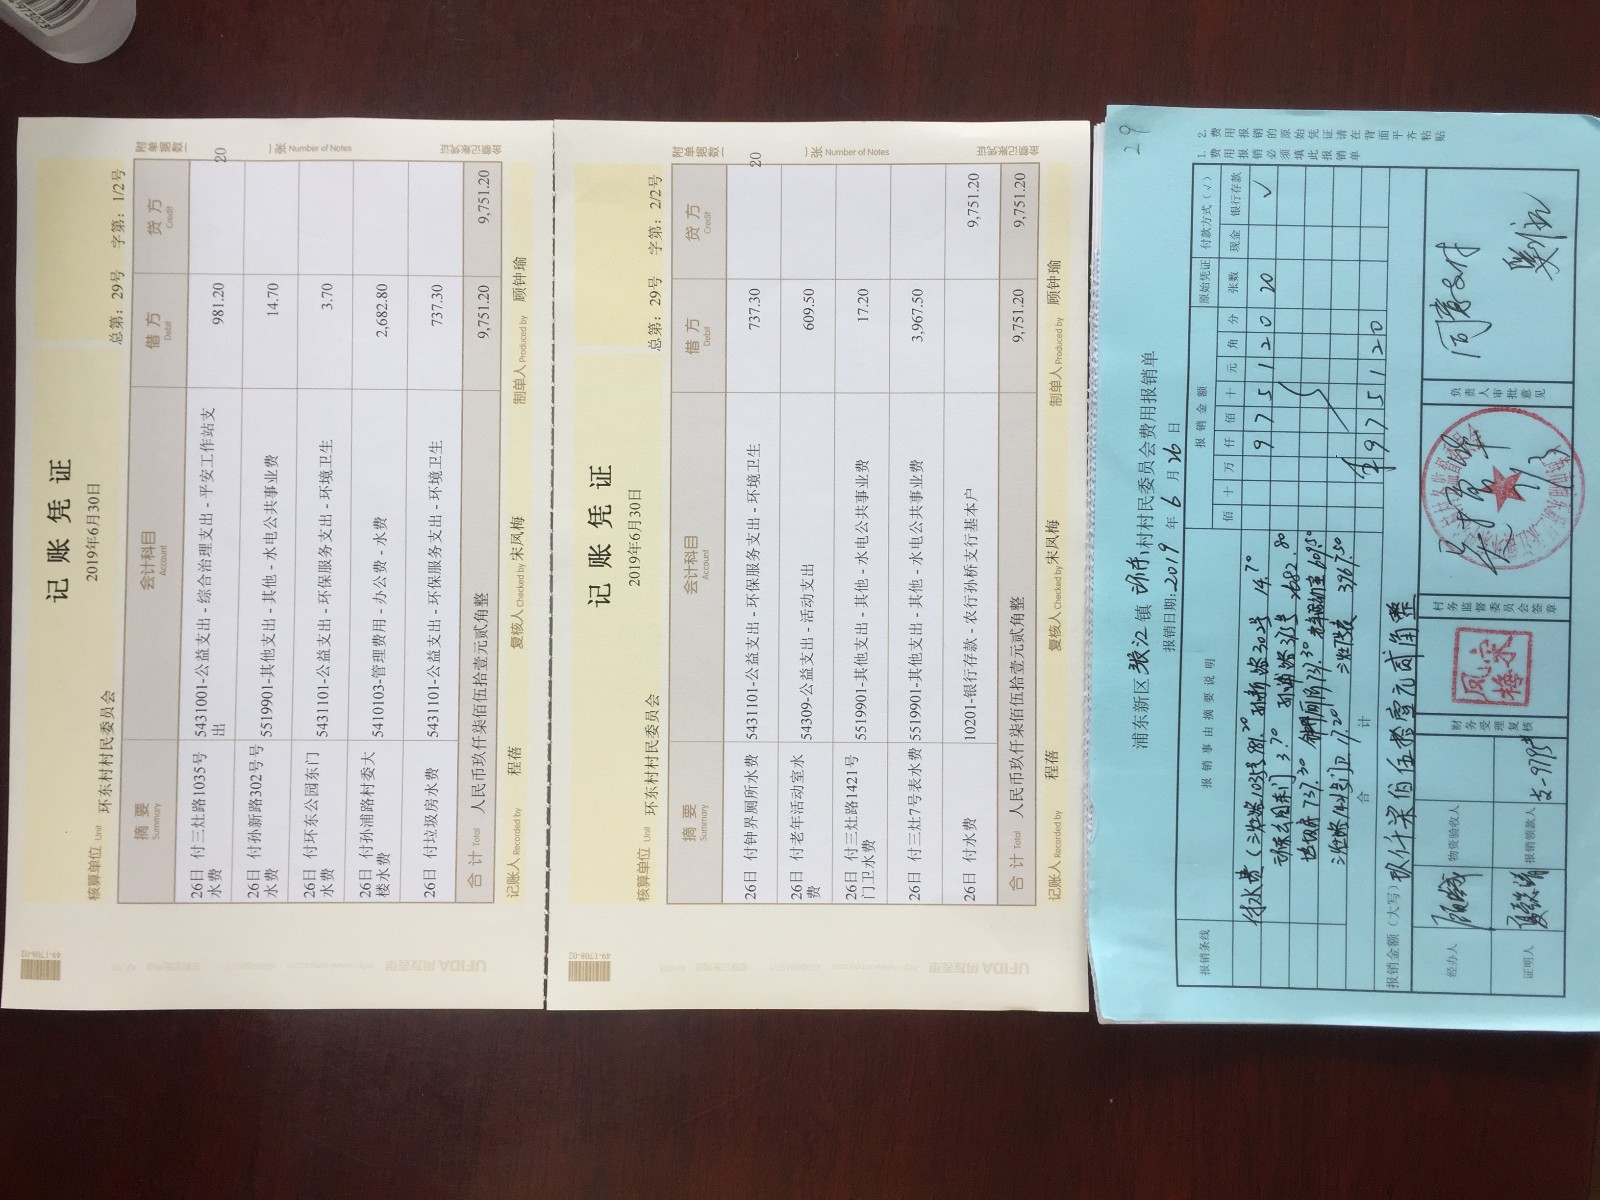 记 账 凭 证
2019年6月30日
总第：29号 字第：1/2号
核算单位 Unit 环东村村民委员会
附单据数 20 张 Number of Notes
摘 要 Summary 会计科目 Account 借 方 Debit 贷 方 Credit
26日 付三灶路1035号水费 5431001-公益支出 - 综合治理支出 - 平安工作站支出 981.20
26日 付孙新路302号号水费 5519901-其他支出 - 其他 - 水电公共事业费 14.70
26日 付环东公园东门水费 5431101-公益支出 - 环保服务支出 - 环境卫生 3.70
26日 付孙浦路村委大楼水费 5410103-管理费用 - 办公费 - 水费 2,682.80
26日 付垃圾房水费 5431101-公益支出 - 环保服务支出 - 环境卫生 737.30
合 计 Total 人民币玖仟柒佰伍拾壹元贰角整 9,751.20 9,751.20
记账人 Recorded by 程蓓 复核人 Checked by 宋凤梅 制单人 Produced by 顾钟瑜
49-1708-02
UFIDA
记 账 凭 证
2019年6月30日
总第：29号 字第：2/2号
核算单位 Unit 环东村村民委员会
附单据数 20 张 Number of Notes
摘 要 Summary 会计科目 Account 借 方 Debit 贷 方 Credit
26日 付钟界厕所水费 5431101-公益支出 - 环保服务支出 - 环境卫生 737.30
26日 付老年活动室水费 54309-公益支出 - 活动支出 609.50
26日 付三灶路1421号门卫水费 5519901-其他支出 - 其他 - 水电公共事业费 17.20
26日 付三灶7号表水费 5519901-其他支出 - 其他 - 水电公共事业费 3,967.50
26日 付水费 10201-银行存款 - 农行孙桥支行基本户 9,751.20
合 计 Total 人民币玖仟柒佰伍拾壹元贰角整 9,751.20 9,751.20
记账人 Recorded by 程蓓 复核人 Checked by 宋凤梅 制单人 Produced by 顾钟瑜
49-1708-02
UFIDA
29
浦东新区张江镇环东村村民委员会费用报销单
报销日期:2019年6月26日
报销条线 报 销 事 由 摘 要 说 明 报 销 金 额 原始凭证 付款方式（√）
佰 十 万 仟 佰 十 元 角 分 张数 现金 银行存款
付水费（三灶路1035号981.20 孙新路302号 14.70 9 7 5 1 2 0 20 √
环东公园东门 3.70 孙浦路315号 2682.80
垃圾房 737.30 钟界厕所737.30 老年活动室 609.50
三灶路1421号门卫 17.20 三灶7号表 3967.50
合 计 ¥ 9 7 5 1 2 0
报销金额（大写）玖仟柒佰伍拾壹元贰角整
经办人 物资验收人 财务受理复核 宋凤梅 村务监督委员会签章 负责人审批意见 同意支付
证明人 报销领款人 支-9775#
1. 费用报销必须填此报销单
2. 费用报销的原始凭证请在背面平齐粘贴